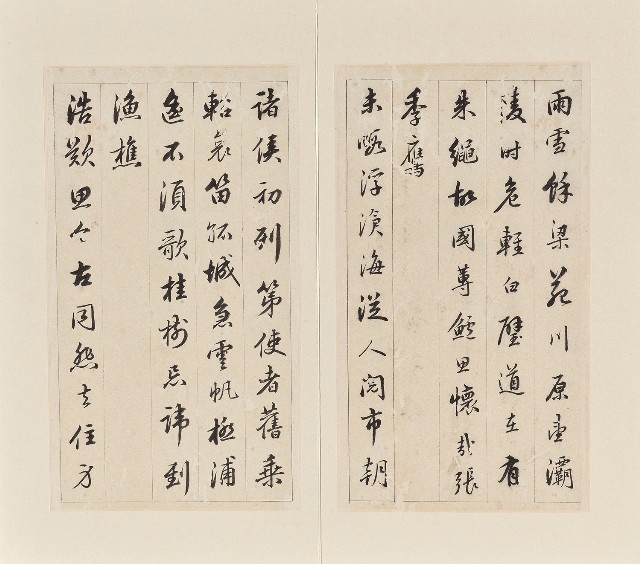 雨雪餘梁苑川原盡灞
陵時危輕白璧道在有
朱繩故國蓴鱸思懷哉張
季鷹
未嘅浮滄海從人閱市朝
諸侯初列第使者舊乘
軺哀笛孤城急雲帆極浦
遥不須歌桂樹忌諱到
漁樵
浩歎思今古同然去住方